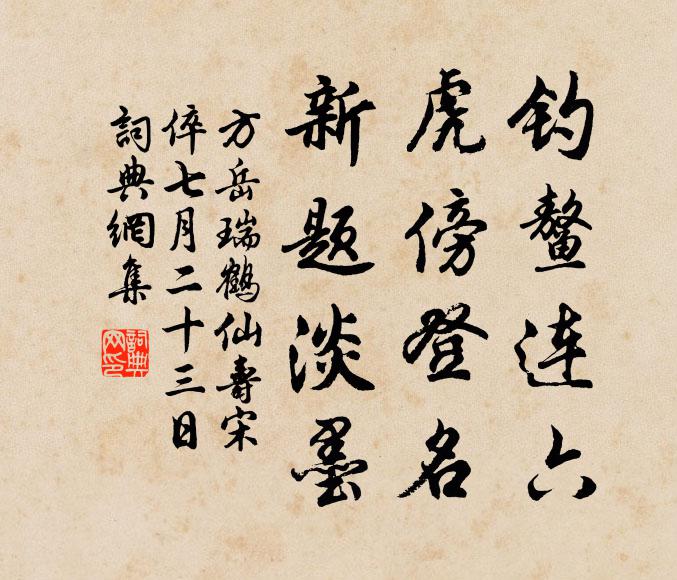 钓鳌连六
虎傍登名
新题淡墨
方岳瑞鶴仙壽宋
倅七月二十三日
詞典網集
詞典網印